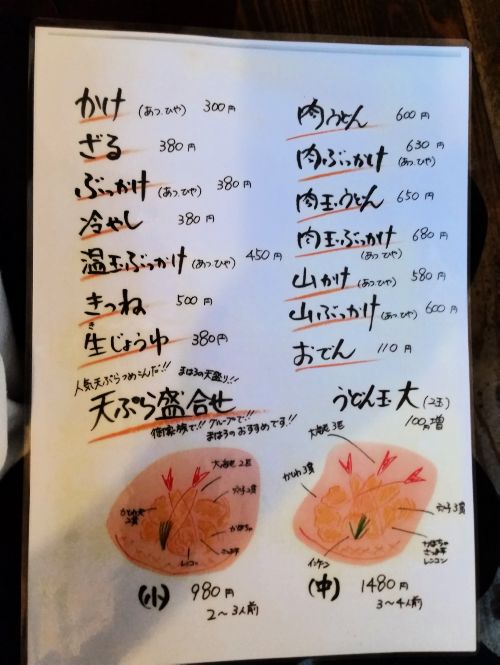 かけ (あつ、ひや) 300円
ざる 380円
ぶっかけ (あつ、ひや) 380円
冷やし 380円
温玉ぶっかけ (あつ、ひや) 450円
きつね 500円
き
生じょうゆ 380円
肉うどん 600円
肉ぶっかけ 630円
(あつ、ひや)
肉玉うどん 650円
肉玉ぶっかけ 680円
(あつ、ひや)
山かけ (あつ、ひや) 580円
山ぶっかけ (あつ、ひや) 600円
おでん 110円
人気天ぷらつめこんだ!! まはろの天盛り!!
天ぷら盛合せ
御家族で!! グループで!!
まはろのおすすめです!!
うどん玉 大 (2玉)
100円増
大海老 2匹
かしわ天
2貫
穴子 2貫
かぼちゃ
さつま芋
レンコン
(小) 980円
2〜3人前
大海老 3匹
かしわ 3貫
穴子 3貫
かぼちゃ
さつま芋
レンコン
インゲン
(中) 1480円
3〜4人前